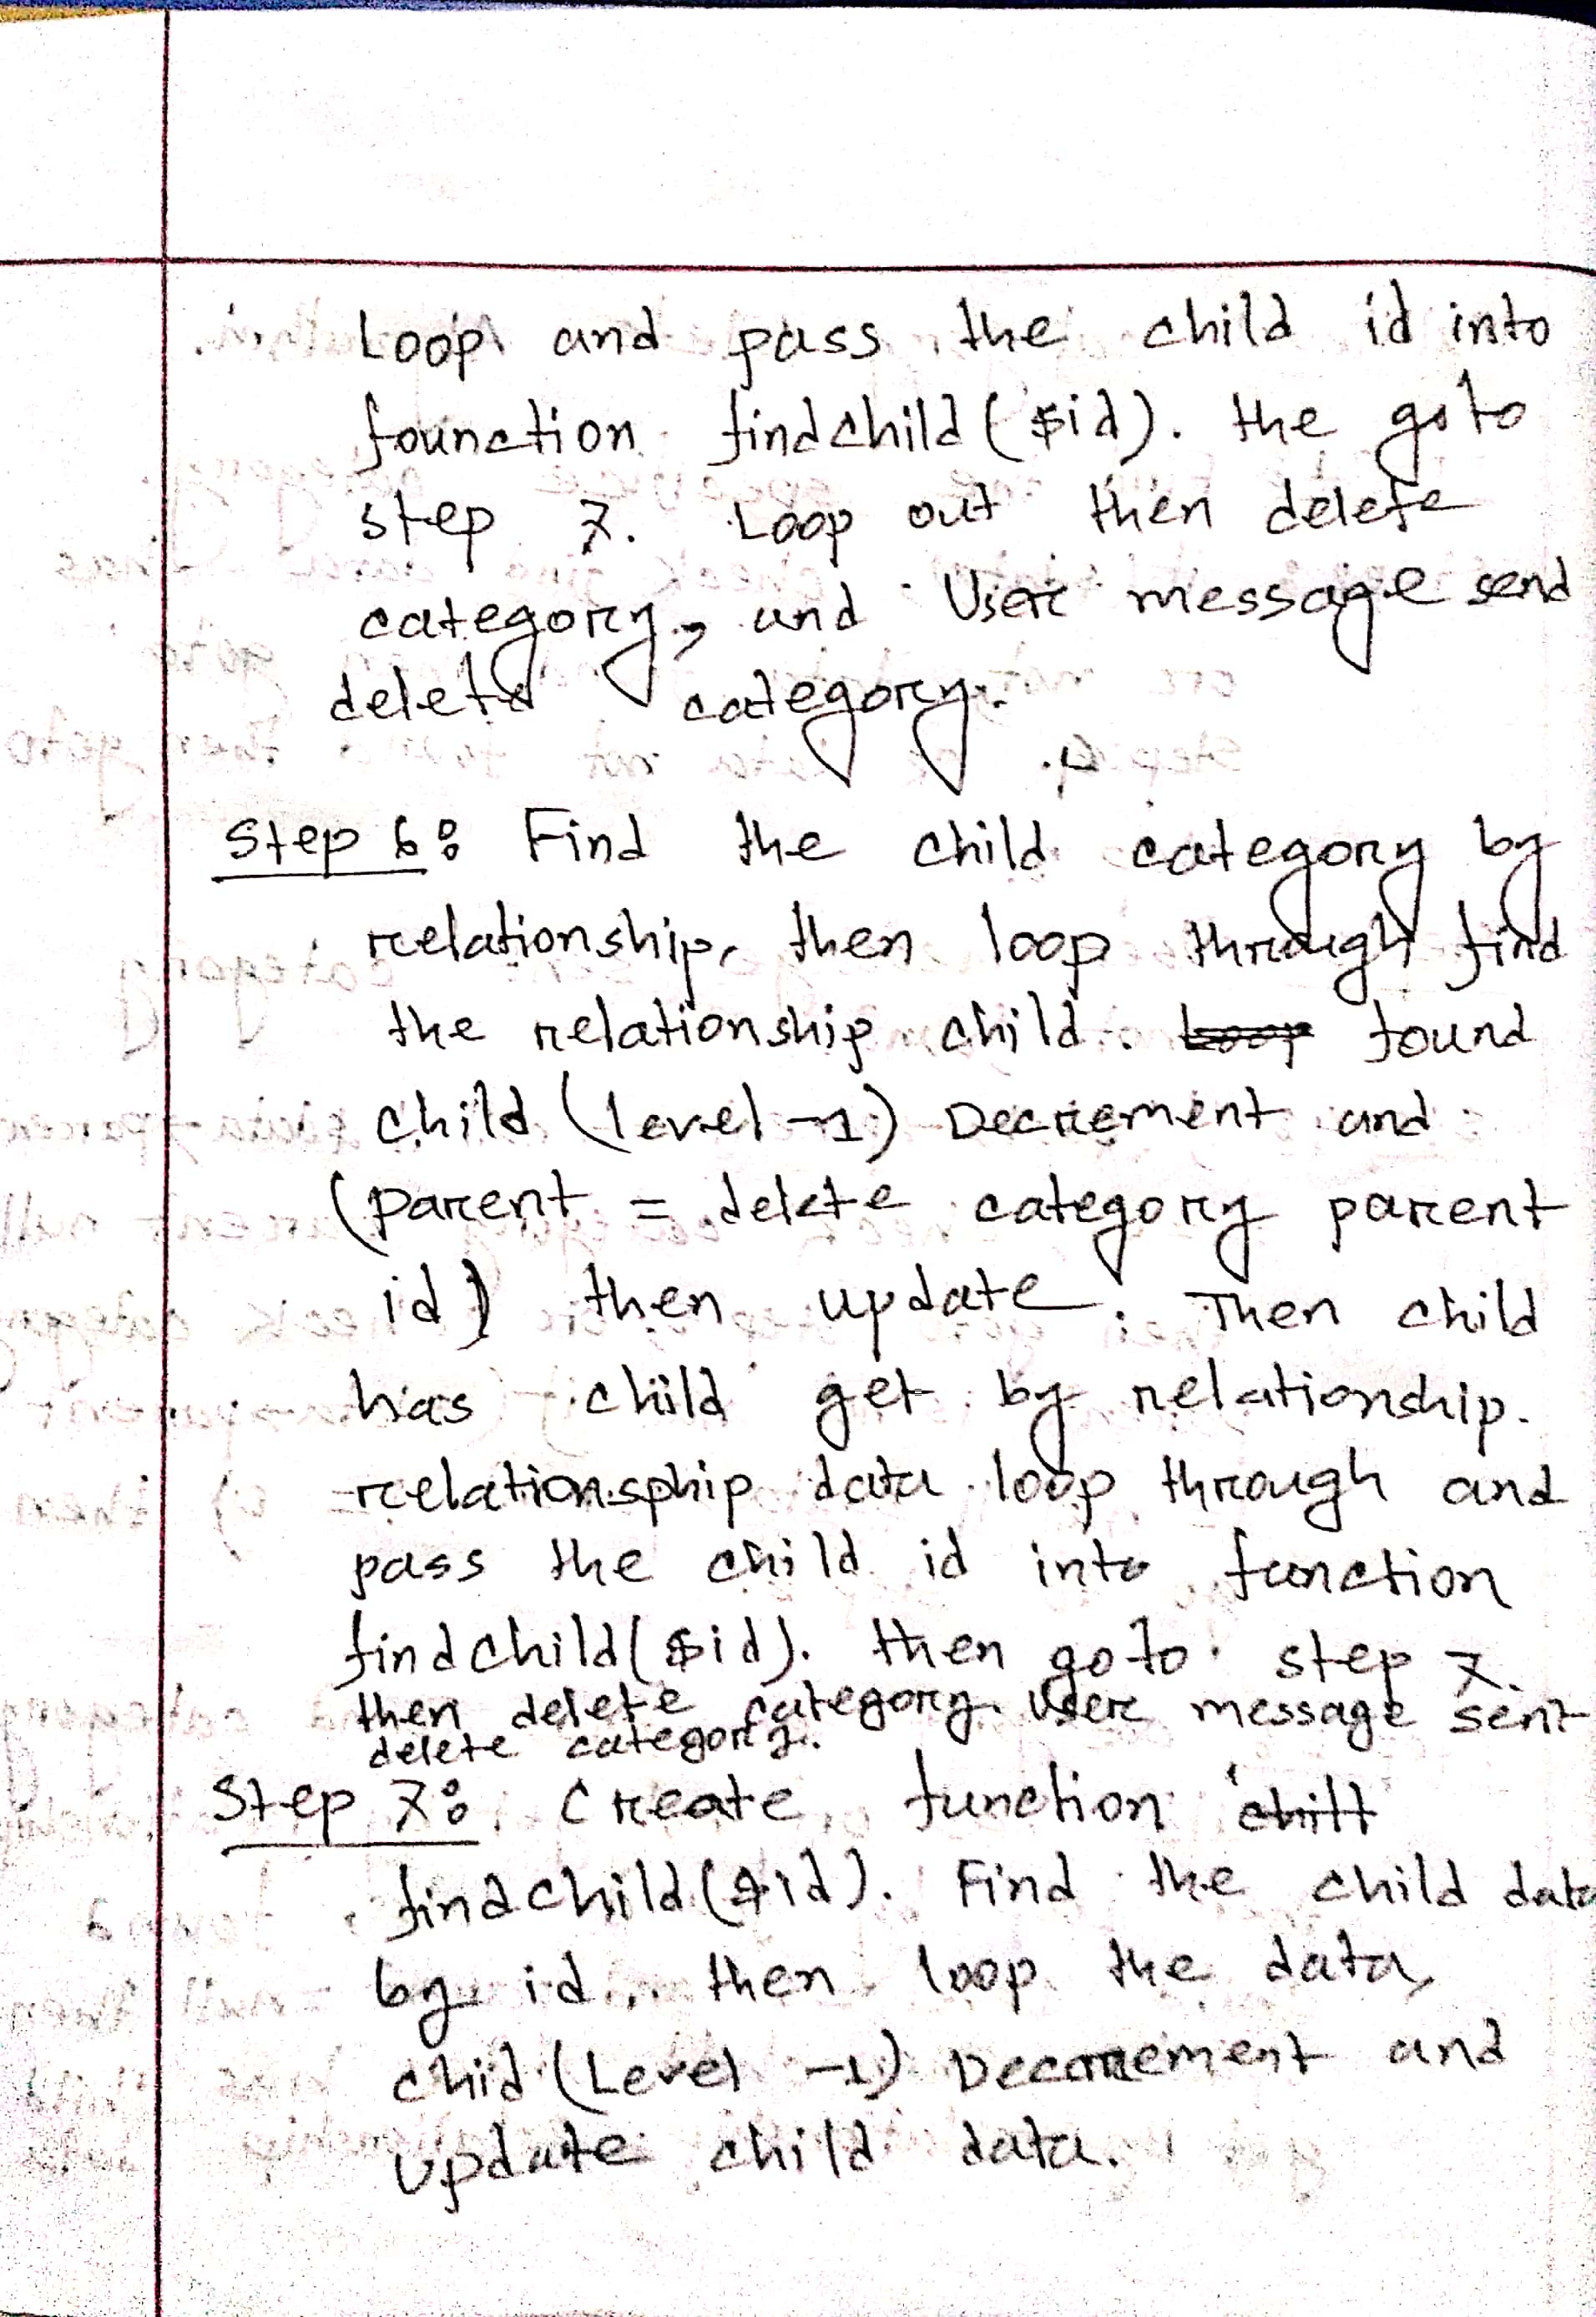 Loop and pass the child id into
founction findchild($id). the goto
step 7. Loop out then delete
category, and User message send
delete category.
Step 6: Find the child category by
relationship, then loop through find
the relationship child. Loop found
child (level-1) Decrement and
(parent = delete category parent
id) then update. Then child
has child get by relationship.
relationsphip data loop through and
pass the child id into function
findchild($id). then goto step 7.
then delete category. User message sent
delete category.
Step 7: Create function
findchild($id). Find the child data
by id, then loop the data,
chid (Level -1) Decrement and
update child data.